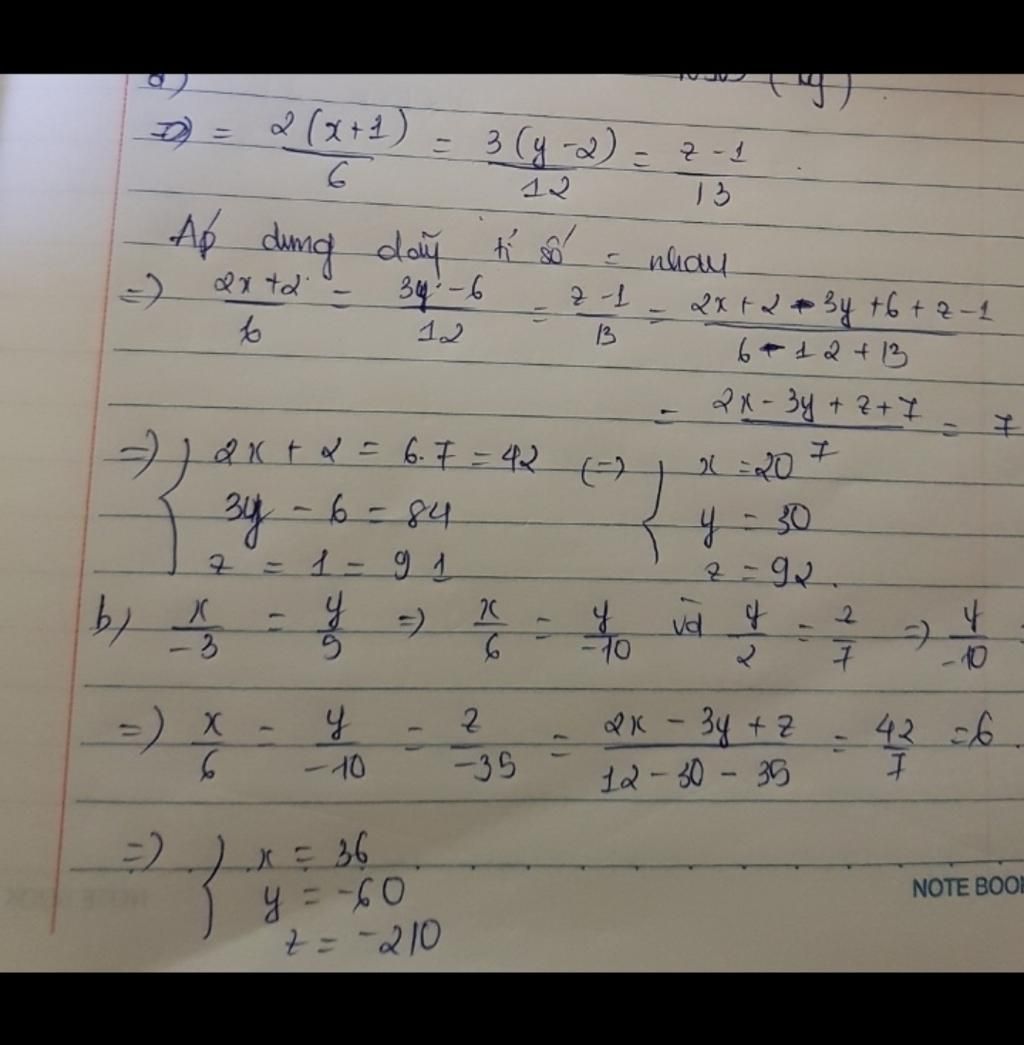 a)
=> = 2(x+1)/6 = 3(y-2)/12 = z-1/13
Áp dụng dãy tỉ số = nhau
=> 2x+2/6 = 3y-6/12 = z-1/13 = 2x+2-3y+6+z-1/6-12+13
= 2x-3y+z+7/7 = 7
=> { 2x+2 = 6.7 = 42 (=> { x = 20
3y - 6 = 84 y = 30
z = 1 = 91 z = 92.
b) x/-3 = y/5 => x/6 = y/-10 và y/2 = z/7 => y/-10 =
=> x/6 = y/-10 = z/-35 = 2x-3y+z/12-30-35 = 42/7 = 6.
=> { x = 36
y = -60
z = -210
NOTE BOO